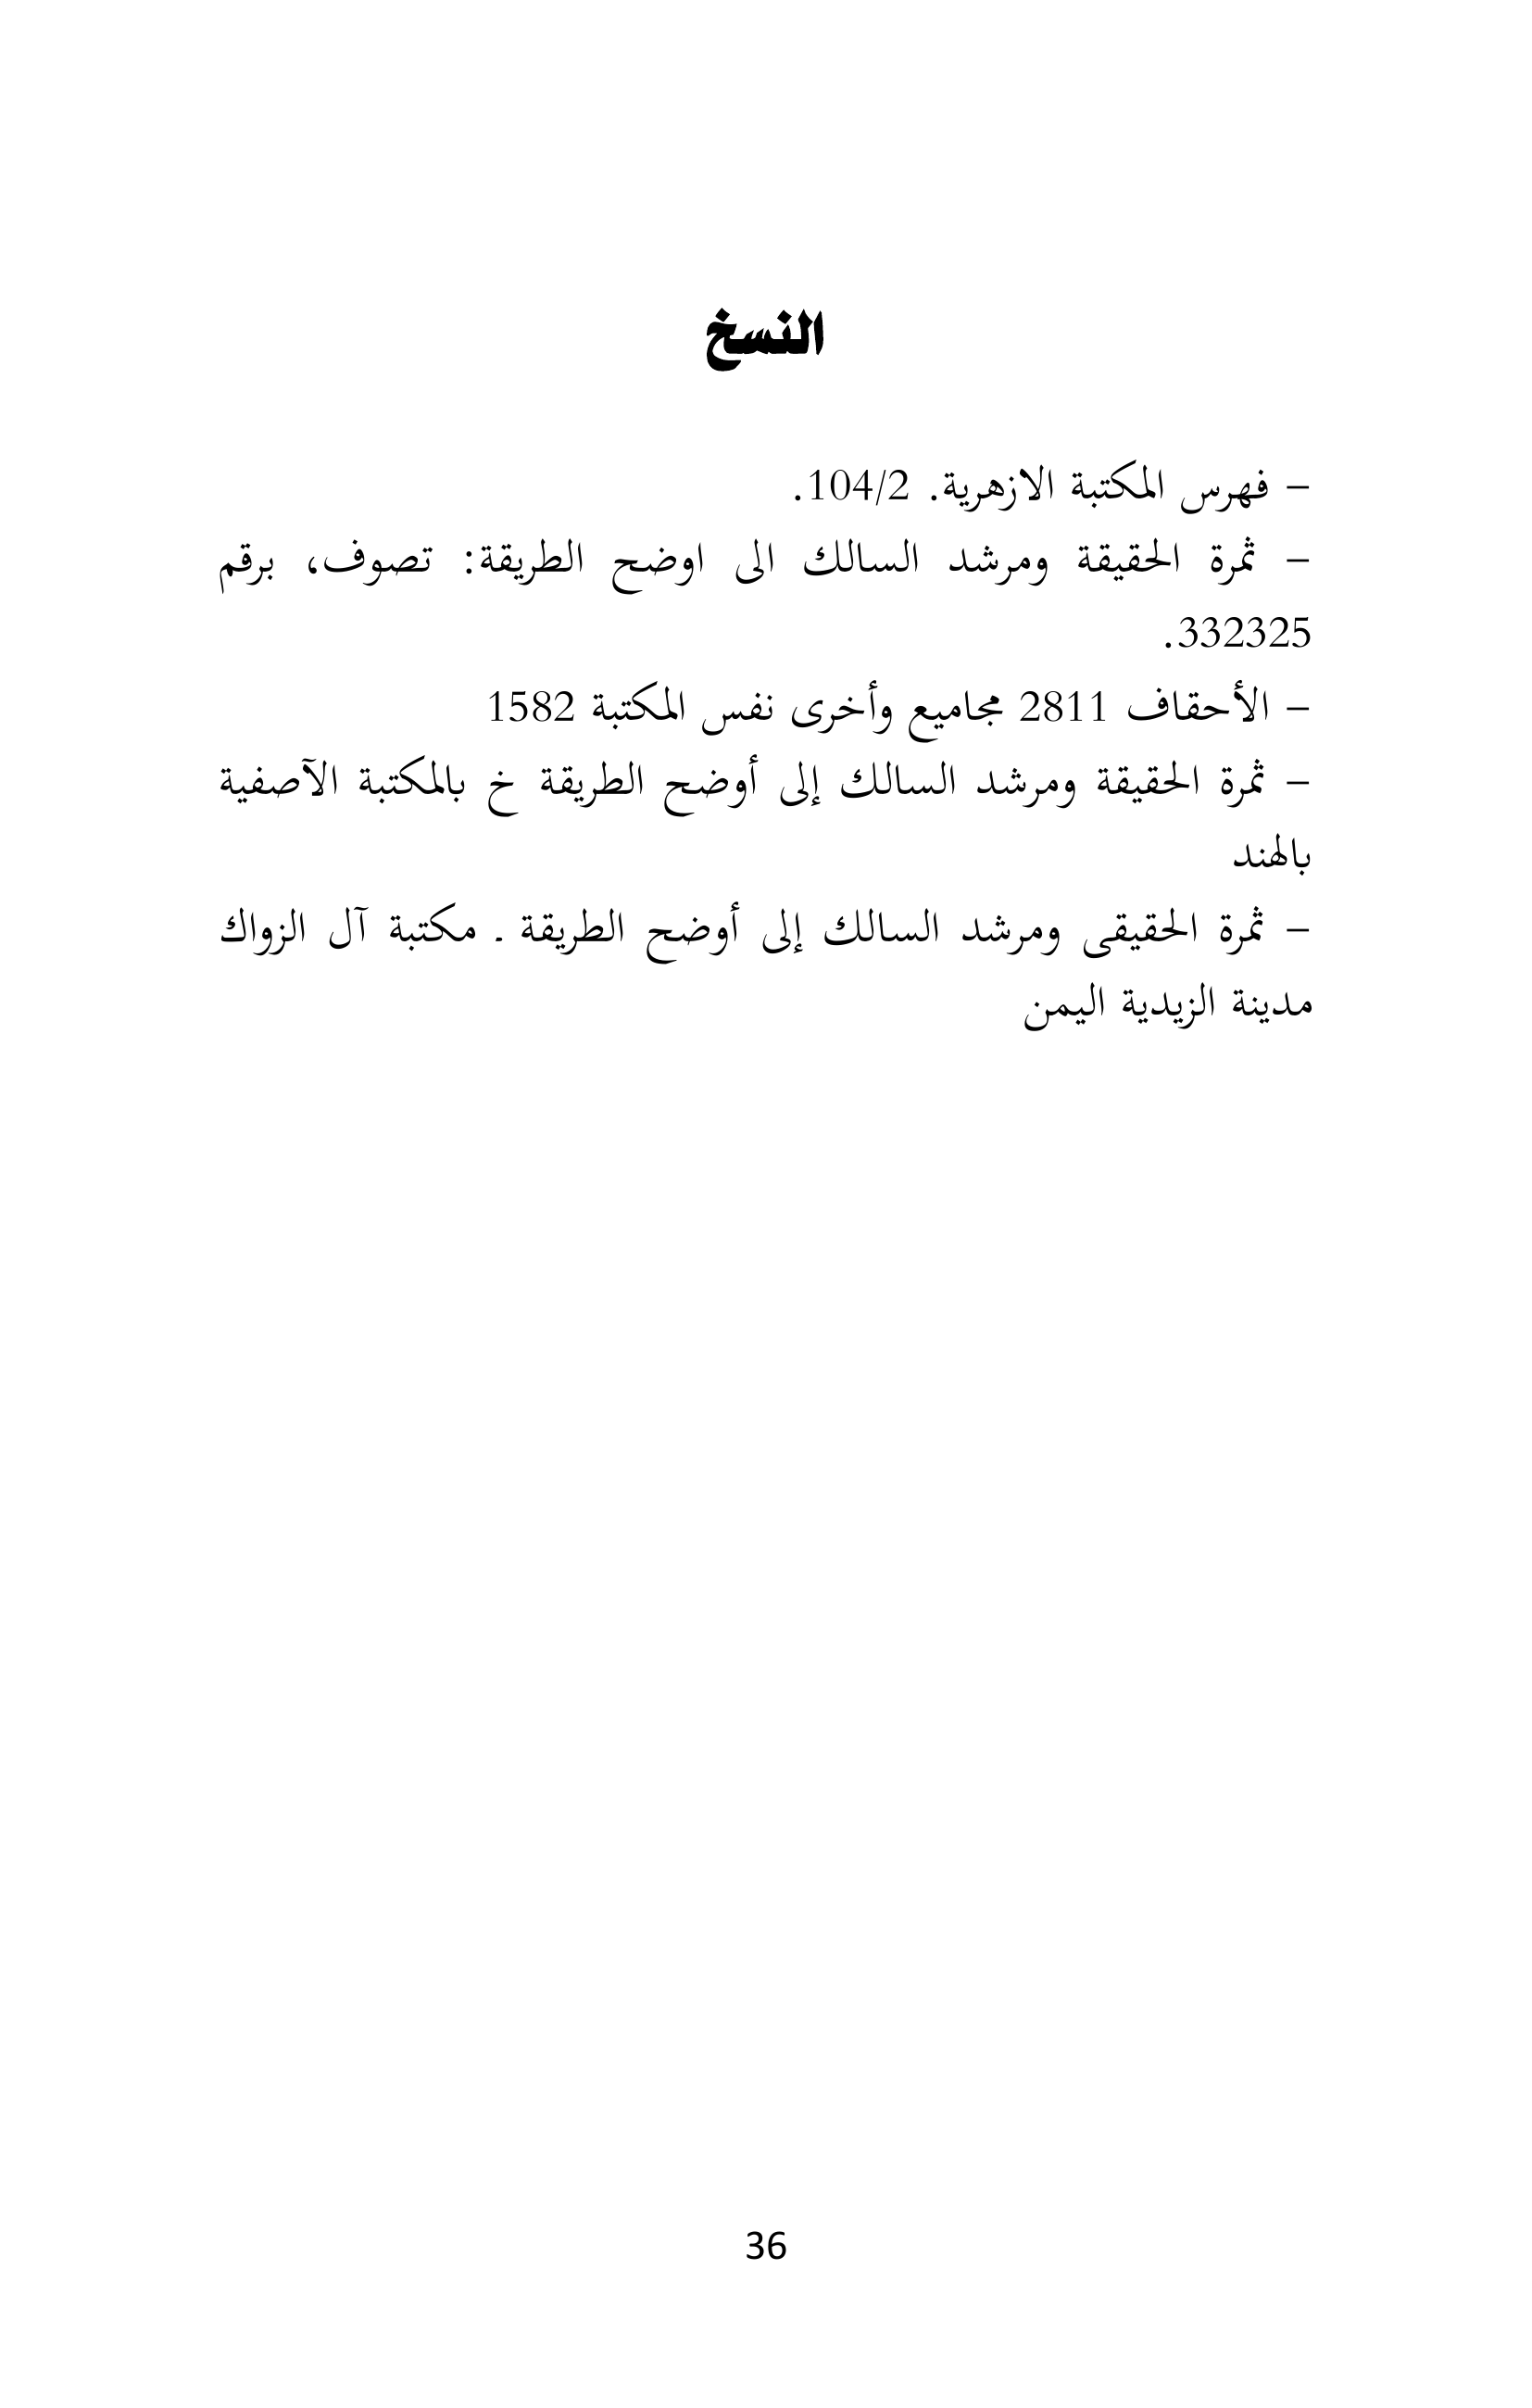 النسخ
– فهرس المكتبة الازهرية. 104/2.
– ثمرة الحقيقة ومرشد السالك الى اوضح الطريقة: تصوف، برقم
332325.
– الأحقاف 2811 مجاميع وأخرى نفس المكتبة 1582
– ثمرة الحقيقة ومرشد السالك إلى أوضح الطريقة خ بالمكتبة الآصفية
بالهند
– ثمرة الحقيقى ومرشد السالك إلى أوضح الطريقة ـ مكتبة آل الزواك
مدينة الزيدية اليمن
36